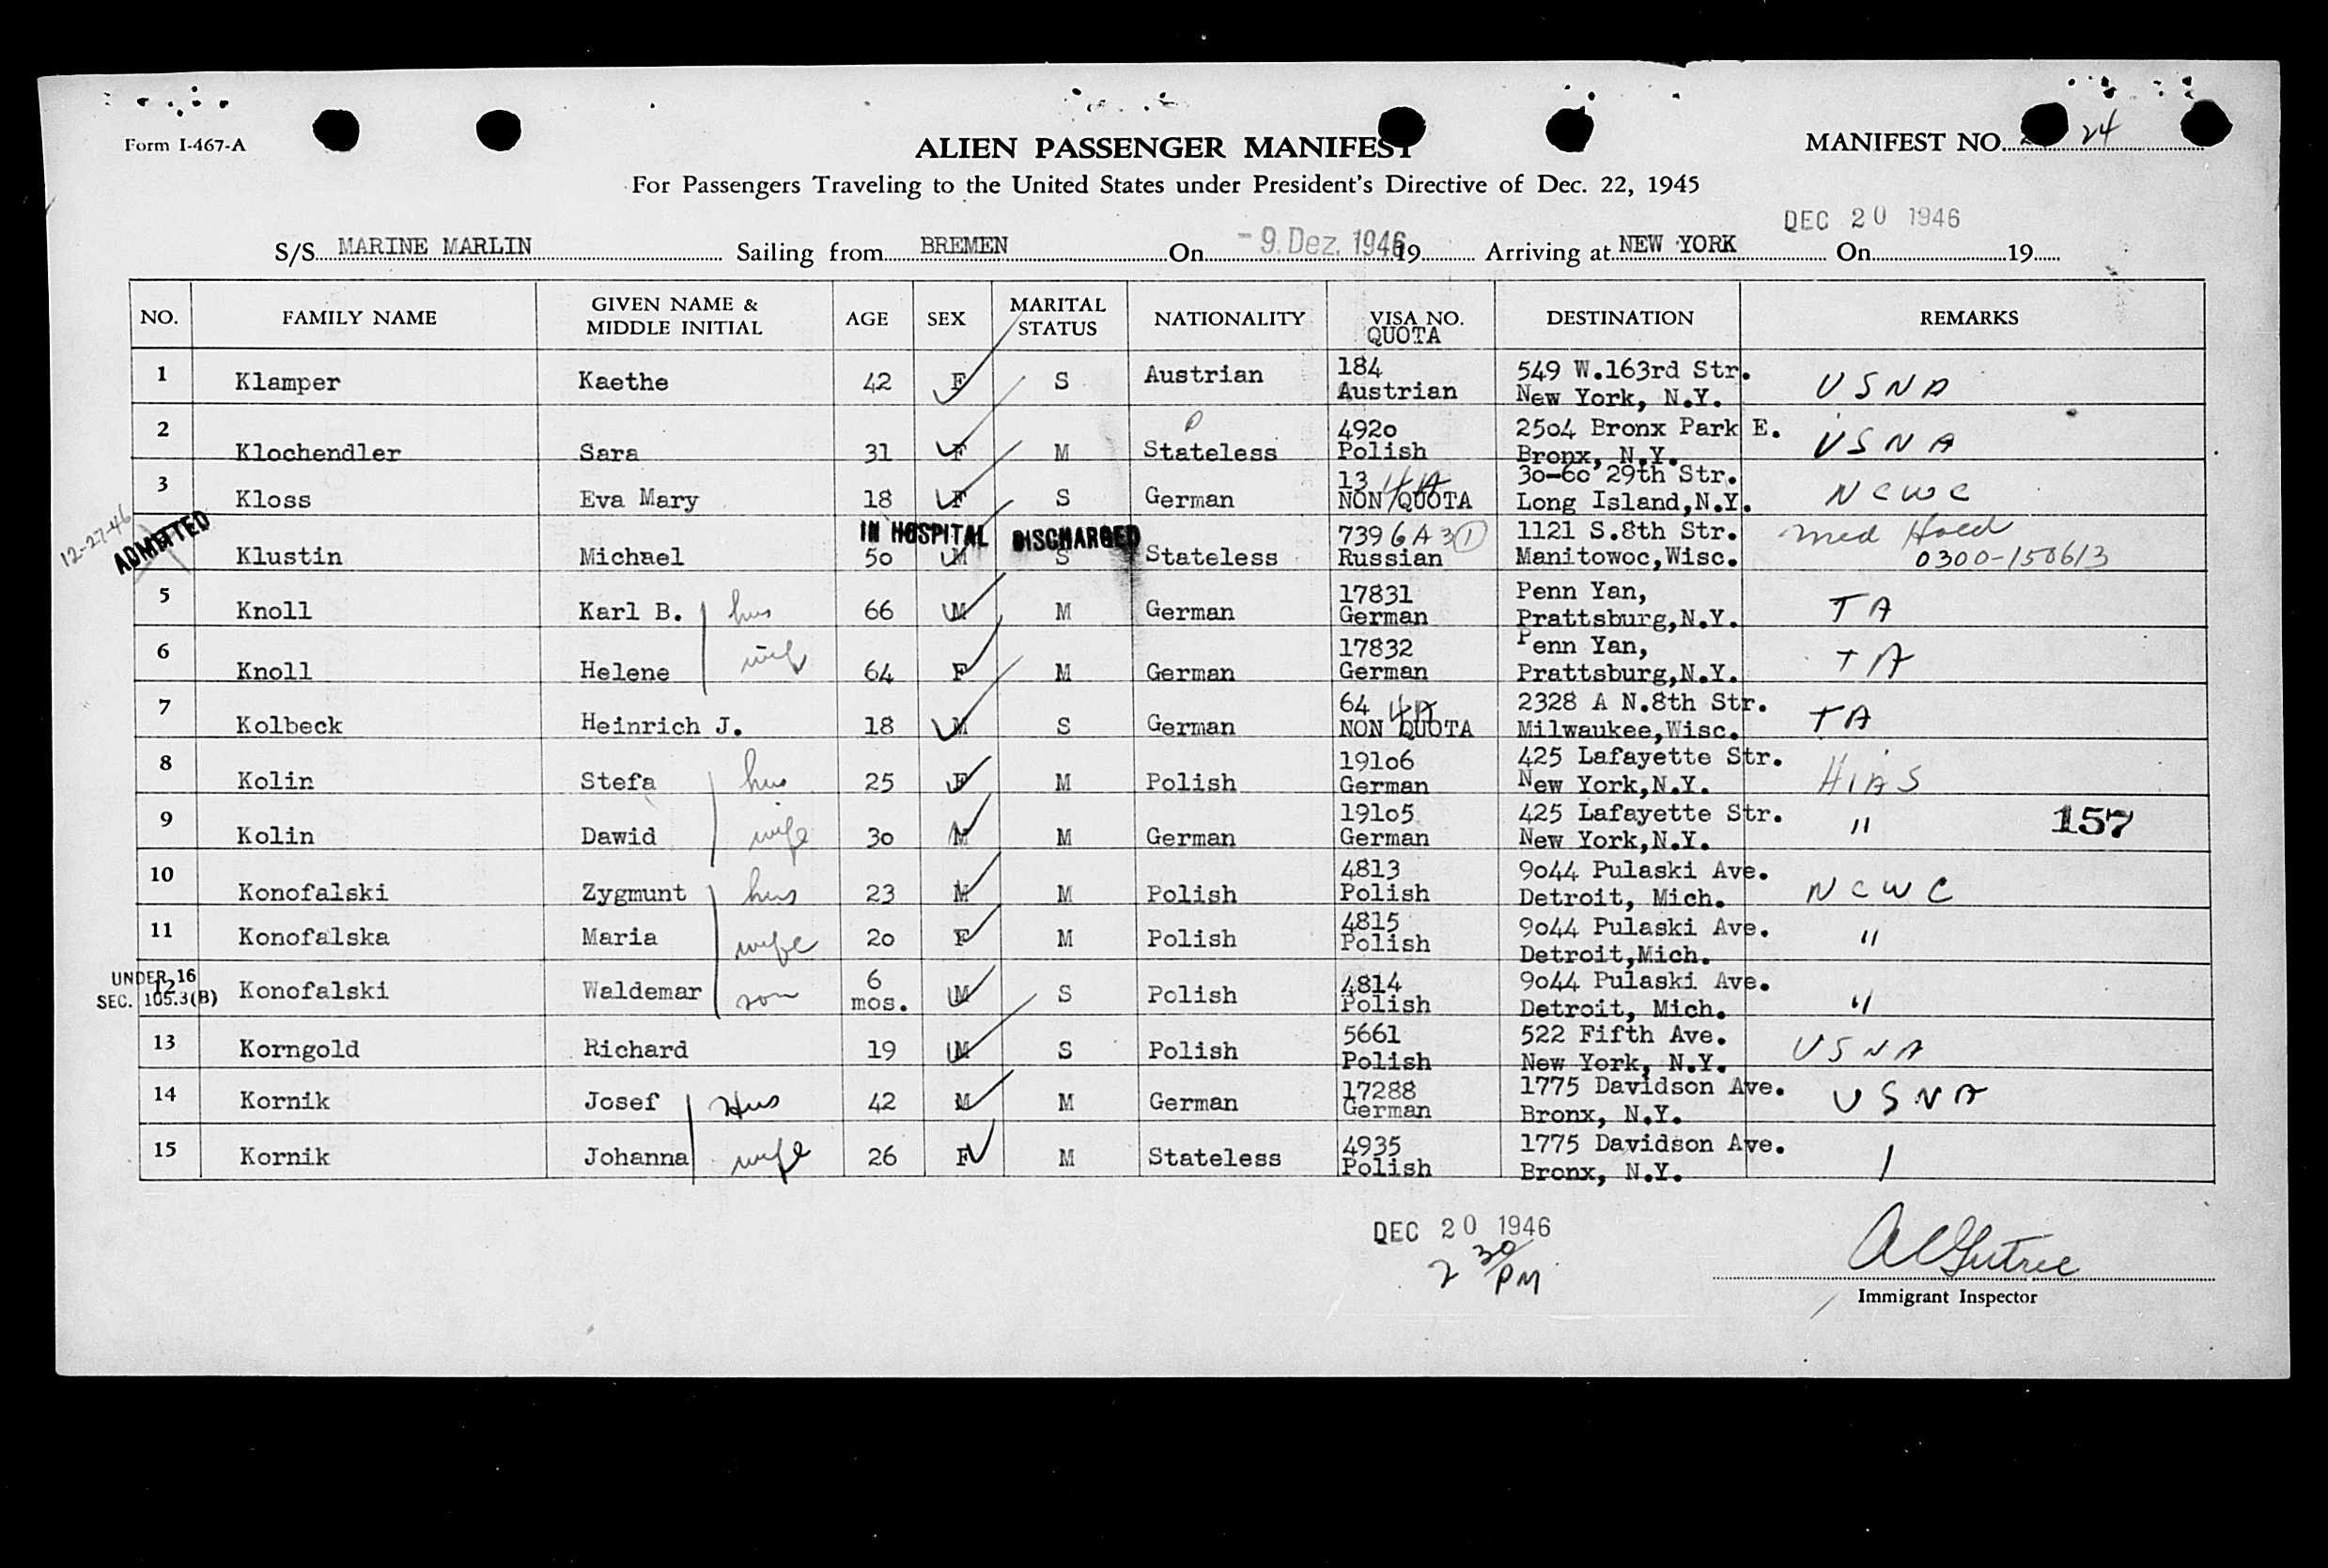 Form I-467-A
ALIEN PASSENGER MANIFEST
MANIFEST NO. 24
For Passengers Traveling to the United States under President's Directive of Dec. 22, 1945
DEC 20 1946
S/S MARINE MARLIN Sailing from BREMEN On - 9. Dez. 1946 19 Arriving at NEW YORK On 19
NO. FAMILY NAME GIVEN NAME & MIDDLE INITIAL AGE SEX MARITAL STATUS NATIONALITY VISA NO. QUOTA DESTINATION REMARKS
1 Klamper Kaethe 42 F S Austrian 184 Austrian 549 W.163rd Str. New York, N.Y. USNA
2 Klochendler Sara 31 F M Stateless 4920 Polish 2504 Bronx Park E. Bronx, N.Y. USNA
3 Kloss Eva Mary 18 F S German 13 4A NON QUOTA 30-60 29th Str. Long Island,N.Y. NCWC
12-27-46 ADMITTED Klustin Michael 50 IN HOSPITAL M DISCHARGED S Stateless 739 6A3 1 Russian 1121 S.8th Str. Manitowoc,Wisc. Med Hold 0300-150613
5 Knoll Karl B. hus 66 M M German 17831 German Penn Yan, Prattsburg,N.Y. TA
6 Knoll Helene wife 64 F M German 17832 German Penn Yan, Prattsburg,N.Y. TA
7 Kolbeck Heinrich J. 18 M S German 64 4A NON QUOTA 2328 A N.8th Str. Milwaukee,Wisc. TA
8 Kolin Stefa hus 25 F M Polish 19106 German 425 Lafayette Str. New York,N.Y. HIAS
9 Kolin Dawid wife 30 M M German 19105 German 425 Lafayette Str. New York,N.Y. " 157
10 Konofalski Zygmunt hus 23 M M Polish 4813 Polish 9044 Pulaski Ave. Detroit, Mich. NCWC
11 Konofalska Maria wife 20 F M Polish 4815 Polish 9044 Pulaski Ave. Detroit,Mich. "
UNDER 16 SEC. 105.3(B) 12 Konofalski Waldemar son 6 mos. M S Polish 4814 Polish 9044 Pulaski Ave. Detroit, Mich. "
13 Korngold Richard 19 M S Polish 5661 Polish 522 Fifth Ave. New York, N.Y. USNA
14 Kornik Josef Hus 42 M M German 17288 German 1775 Davidson Ave. Bronx, N.Y. USNA
15 Kornik Johanna wife 26 F M Stateless 4935 Polish 1775 Davidson Ave. Bronx, N.Y.
DEC 20 1946
2 30 PM
Immigrant Inspector